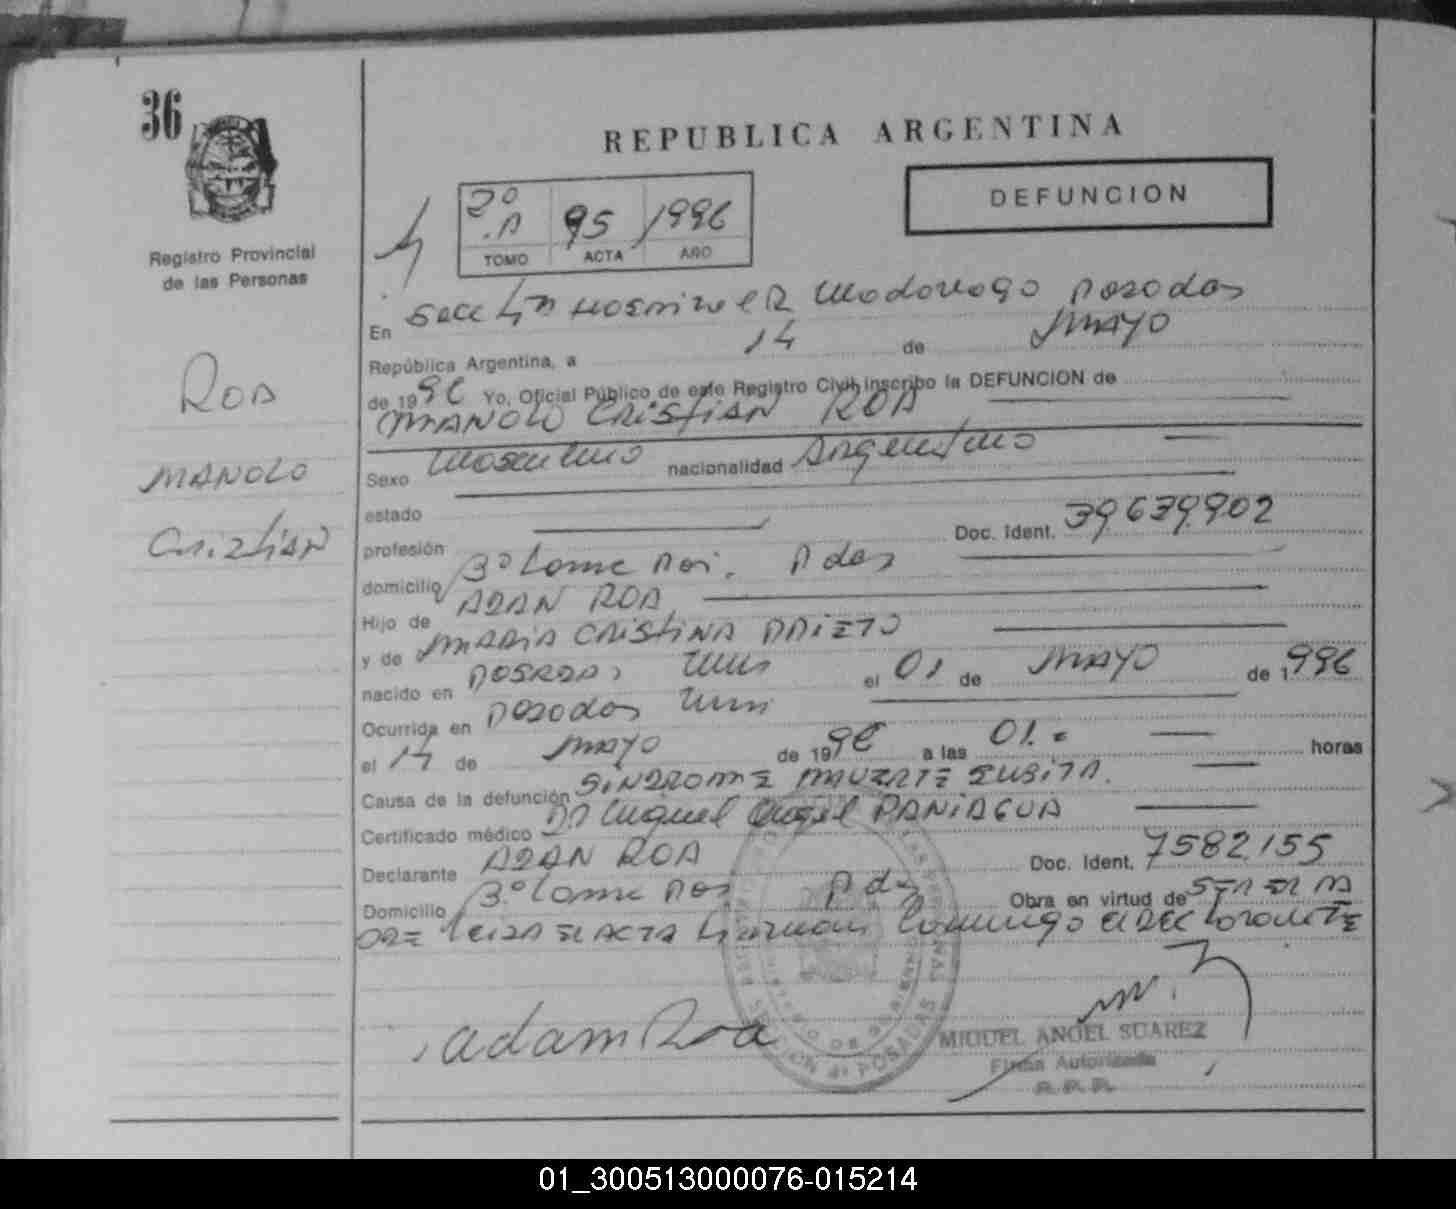 36
REPUBLICA ARGENTINA
DEFUNCION
2º A 95 1996
TOMO ACTA AÑO
Registro Provincial
de las Personas
ROA
MANOLO
Cristian
En Secc 4ta Posadas
República Argentina, a 14 de MAYO
de 1996 Yo, Oficial Público de este Registro Civil, inscribo la DEFUNCION de
MANOLO CRISTIAN ROA
Sexo Masculino nacionalidad Argentino
estado
profesión Doc. Ident. 39.639.902
domicilio Pdas
Hijo de ADAN ROA
y de MARIA CRISTINA PRIETO
nacido en POSADAS, el 01 de MAYO de 1996
Ocurrida en Posadas
el 14 de MAYO de 1996 a las 01. horas
Causa de la defunción SINDROME MUERTE SUBITA.
Certificado médico Dr Miguel Angel PANIAGUA
Declarante ADAN ROA Doc. Ident. 7582.155
Domicilio Pdas Obra en virtud de
LEIDA EL ACTA
adam Roa
SECCION 4ª POSADAS
MIGUEL ANGEL SUAREZ
Firma Autorizada
R. P. P.
01_300513000076-015214